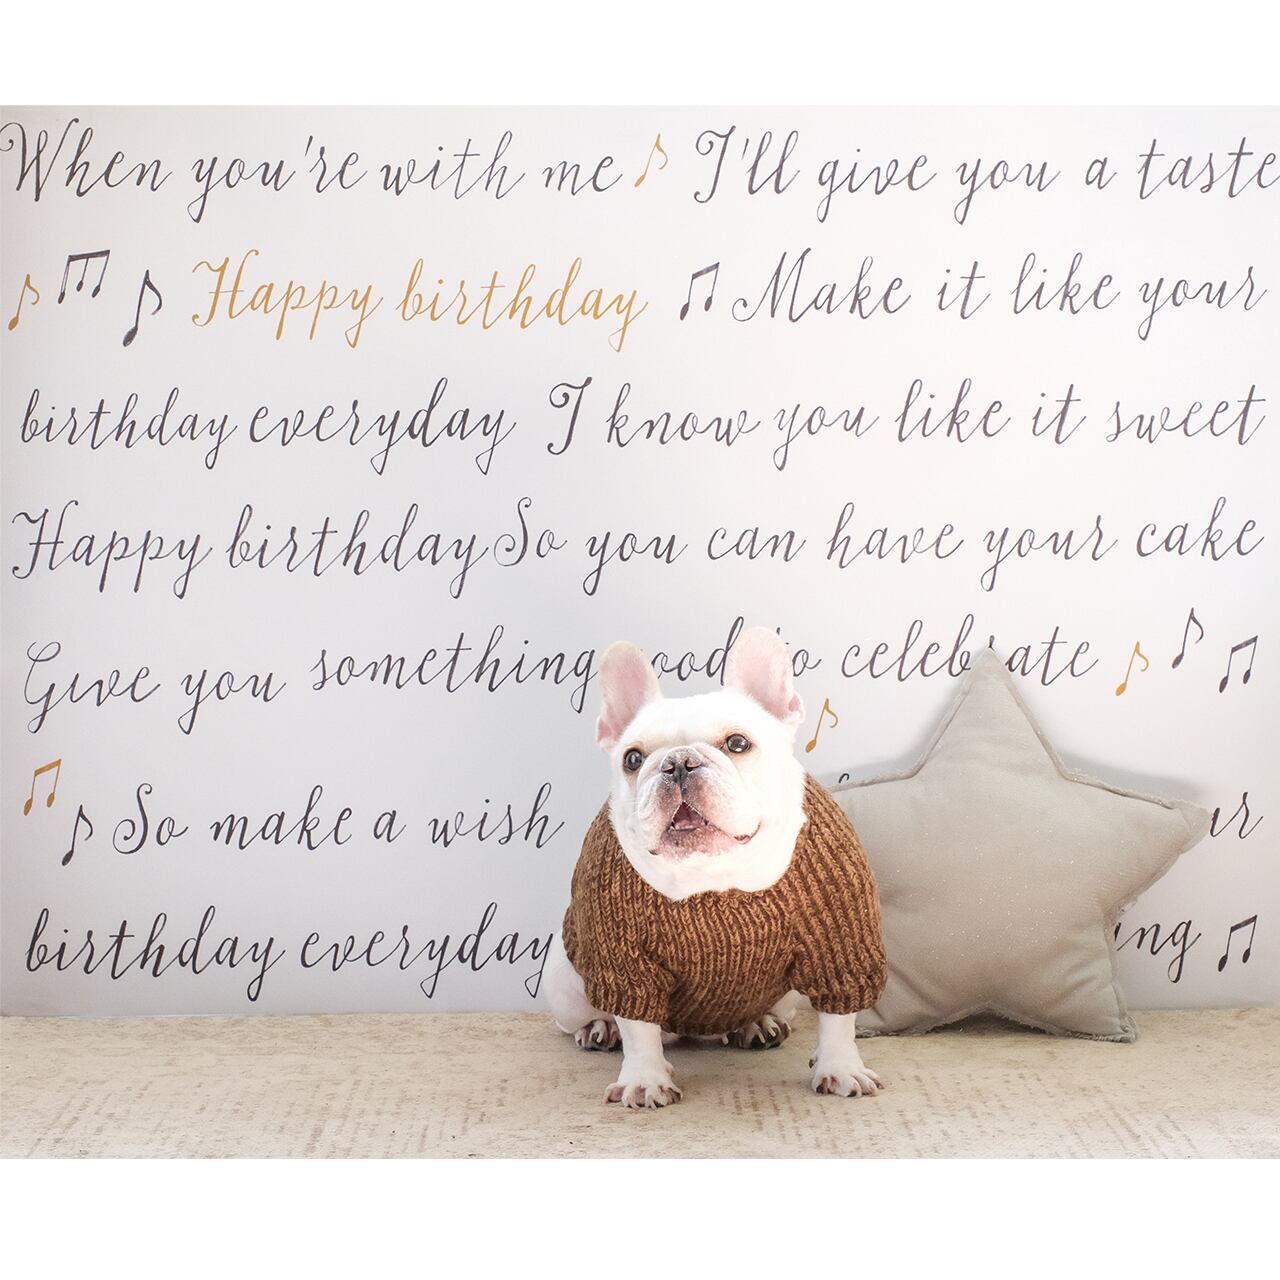 When you're with me I'll give you a taste
Happy birthday Make it like your
birthday everyday I know you like it sweet
Happy birthday So you can have your cake
Give you something to celebrate
So make a wish
birthday everyday